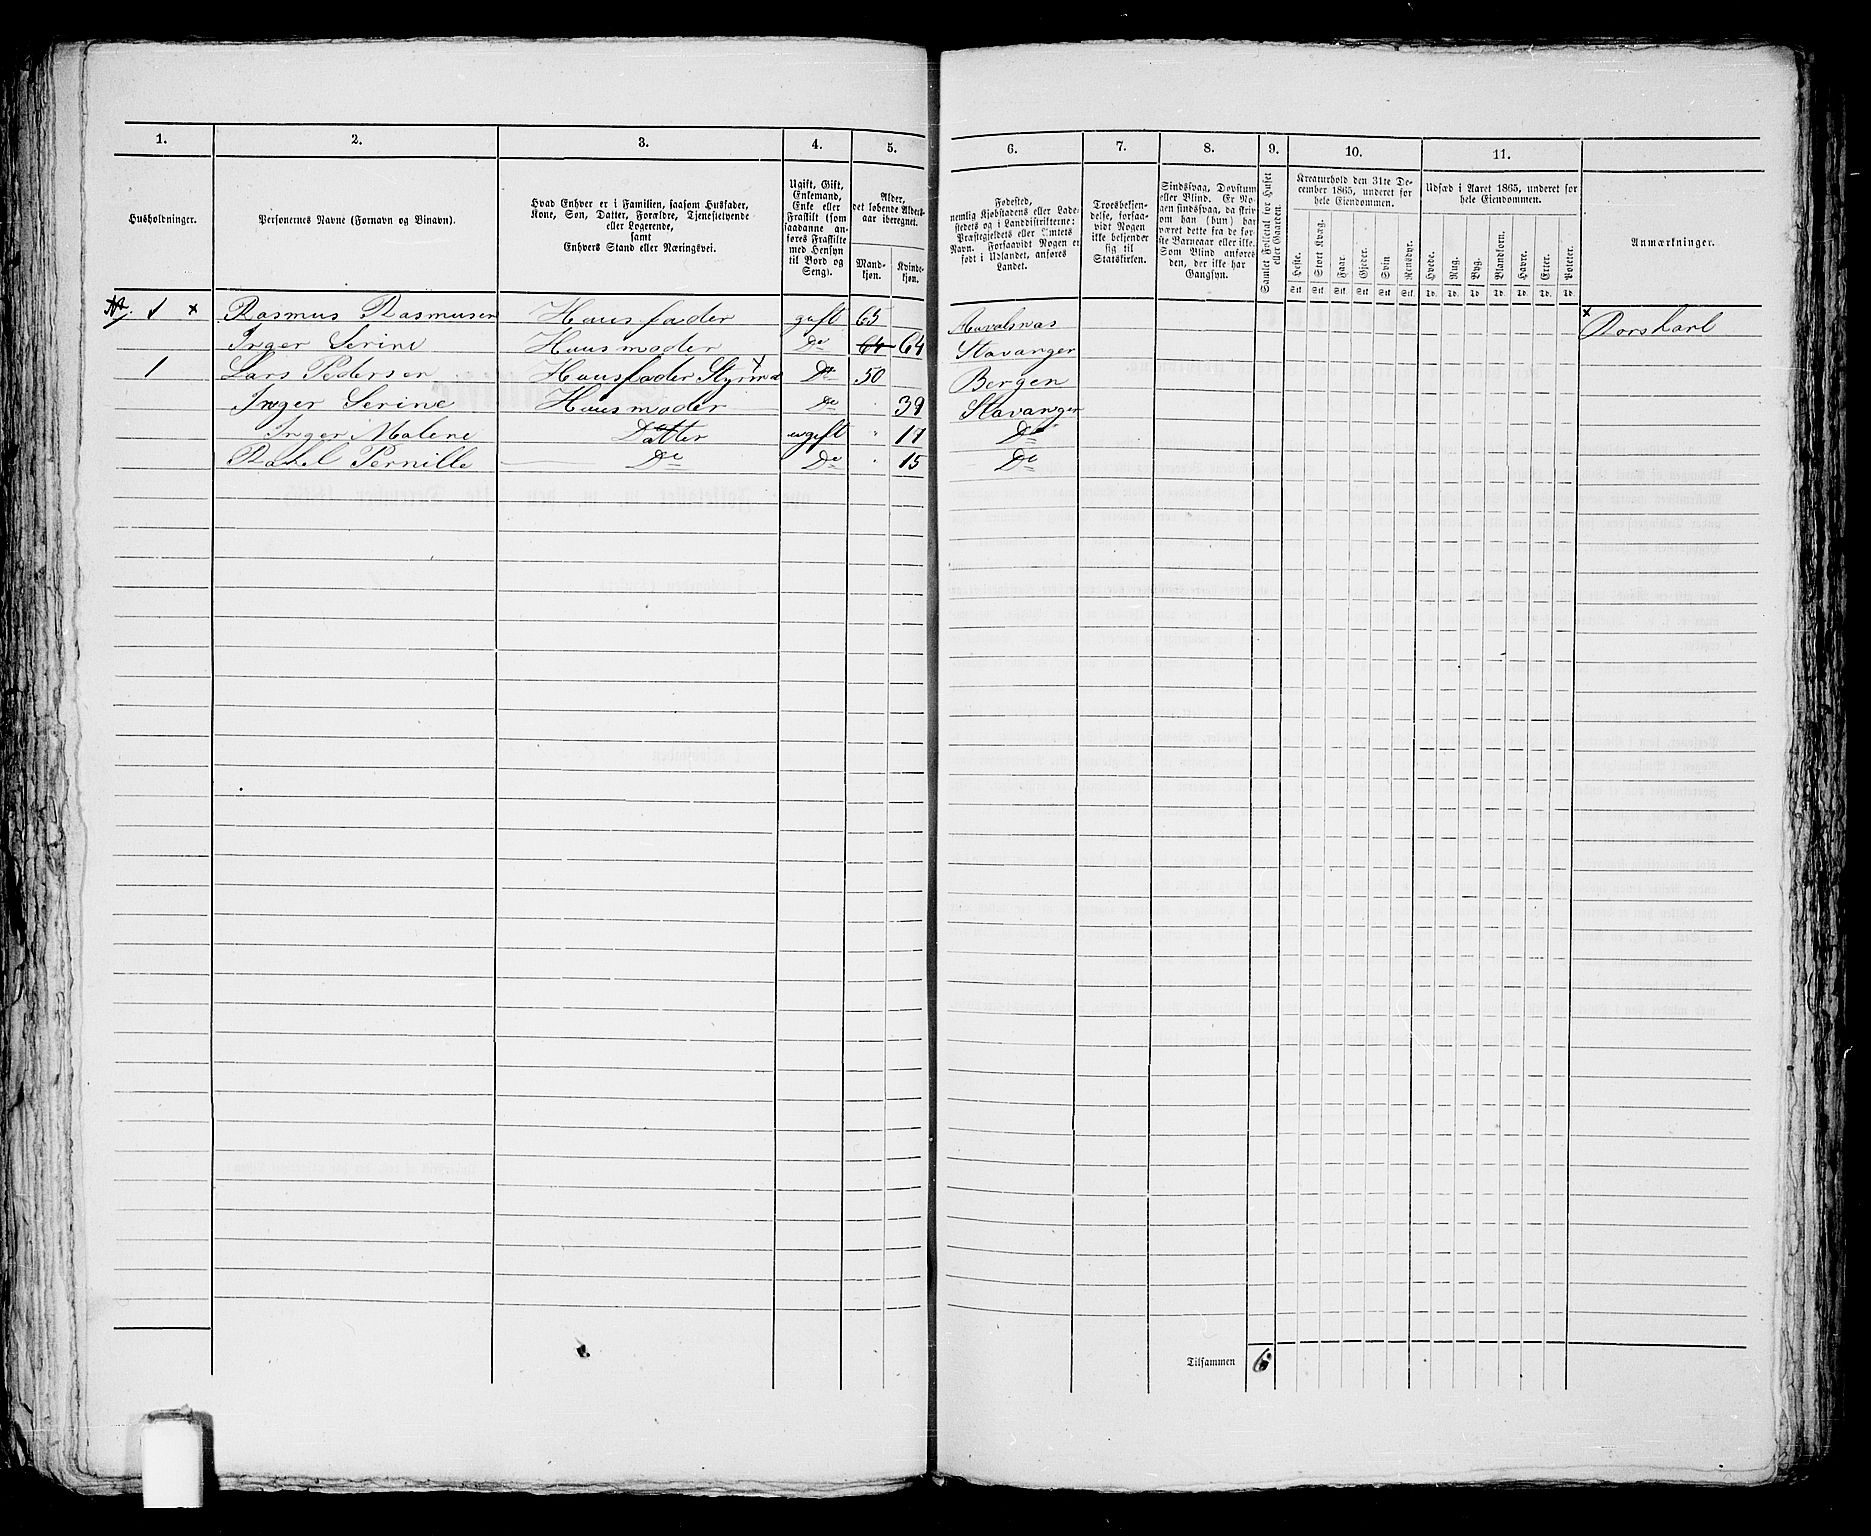 1. 2. 3. 4. 5. 6. 7. 8. 9. 10. 11.
Husholdninger.
Personernes Navne (Fornavn og Binavn).
Hvad Enhver er i Familien, saasom Husfader,
Kone, Søn, Datter, Forældre, Tjenestetyende
eller Logerende,
samt
Enhvers Stand eller Næringsvei.
Ugift, Gift,
Enkemand,
Enke eller
Fraskilt (som
saadanne an-
føres Fraskilte
med Hensyn
til Bord og
Seng).
Alder,
det løbende Alders-
aar iberegnet.
Mand-
kjøn.
Kvinde-
kjøn.
Fødested,
nemlig Kjøbstadens eller Lade-
stedets og i Landdistrikterne:
Præstegjeldets eller Amtets
Navn. Forsaavidt Nogen er
født i Udlandet, anføres
Landet.
Troesbekjen-
delse, forsaa-
vidt Nogen
ikke bekjender
sig til
Statskirken.
Sindssvag, Døvstum
eller Blind. Er No-
gen sindssvag, da skri-
ves om han (hun) har
været dette fra de før-
ste Barneaar eller ikke.
Som Blind anføres
den, der ikke har
Gangsyn.
Samlet Folketal for Huset
eller Gaarden.
Kreaturhold den 31te De-
cember 1865, underet for
hele Eiendommen.
Heste.
Stort Kvæg.
Faar.
Gjeder.
Svin
Rensdyr.
Stk. Stk. Stk. Stk. Stk. Stk.
Udsæd i Aaret 1865, underet for
hele Eiendommen.
Hvede.
Rug.
Byg.
Blandkorn.
Havre.
Erter.
Poteter.
Td. Td. Td. Td. Td. Td. Td.
Anmærkninger.
1 x Rasmus Rasmusen Huusfader gift 65 x
Inger Serine Huusmoder Do 64 64 Stavanger
1 Lars Pedersen Huusfader Do 50 Bergen
Inger Serine Huusmoder Do 39 Stavanger
Inger Malene Datter ugift " 17 Do
Rakel Pernille Do Do " 15 Do
Tilsammen 6